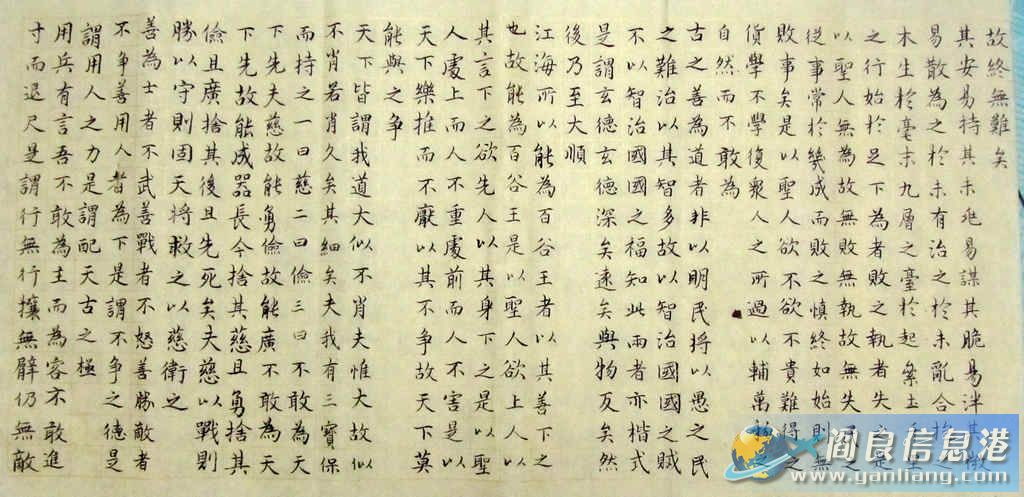 故終無難矣
其安易持其未兆易謀其脆易泮其微
易散為之於未有治之於未亂合抱之
木生於毫末九層之臺於起絫土
之行始於足下為者敗之執者失之是
以聖人無為故無敗無執故無失民之
從事常於幾成而敗之慎終如始則無
敗事矣是以聖人欲不欲不貴難得之
貨學不學復衆人之所過以輔萬物之
自然而不敢為
古之善為道者非以明民将以愚之民
之難治以其智多故以智治國國之賊
不以智治國國之福知此兩者亦楷式
是謂玄德玄德深矣遠矣與物反矣然
後乃至大順
江海所以能為百谷王者以其善下之
也故能為百谷王是以聖人欲上人以
其言下之欲先人以其身下之是以聖
人處上而人不重處前而人不害是以
天下樂推而不厭以其不争故天下莫
能與之争
天下皆謂我道大似不肖夫惟大故似
不肖若肖久矣其細矣夫我有三寶保
而持之一曰慈二曰儉三曰不敢為天
下先夫慈故能勇儉故能廣不敢為天
下先故能成器長今捨其慈且勇捨其
儉且廣捨其後且先死矣夫慈以戰則
勝以守則固天将救之以慈衛之
善為士者不武善戰者不怒善勝敵者
不争善用人者為下是謂不争之德是
謂用人之力是謂配天古之極
用兵有言吾不敢為主而為客不敢進
寸而退尺是謂行無行攘無臂仍無敵
阎良信息港
www.ganliang.com